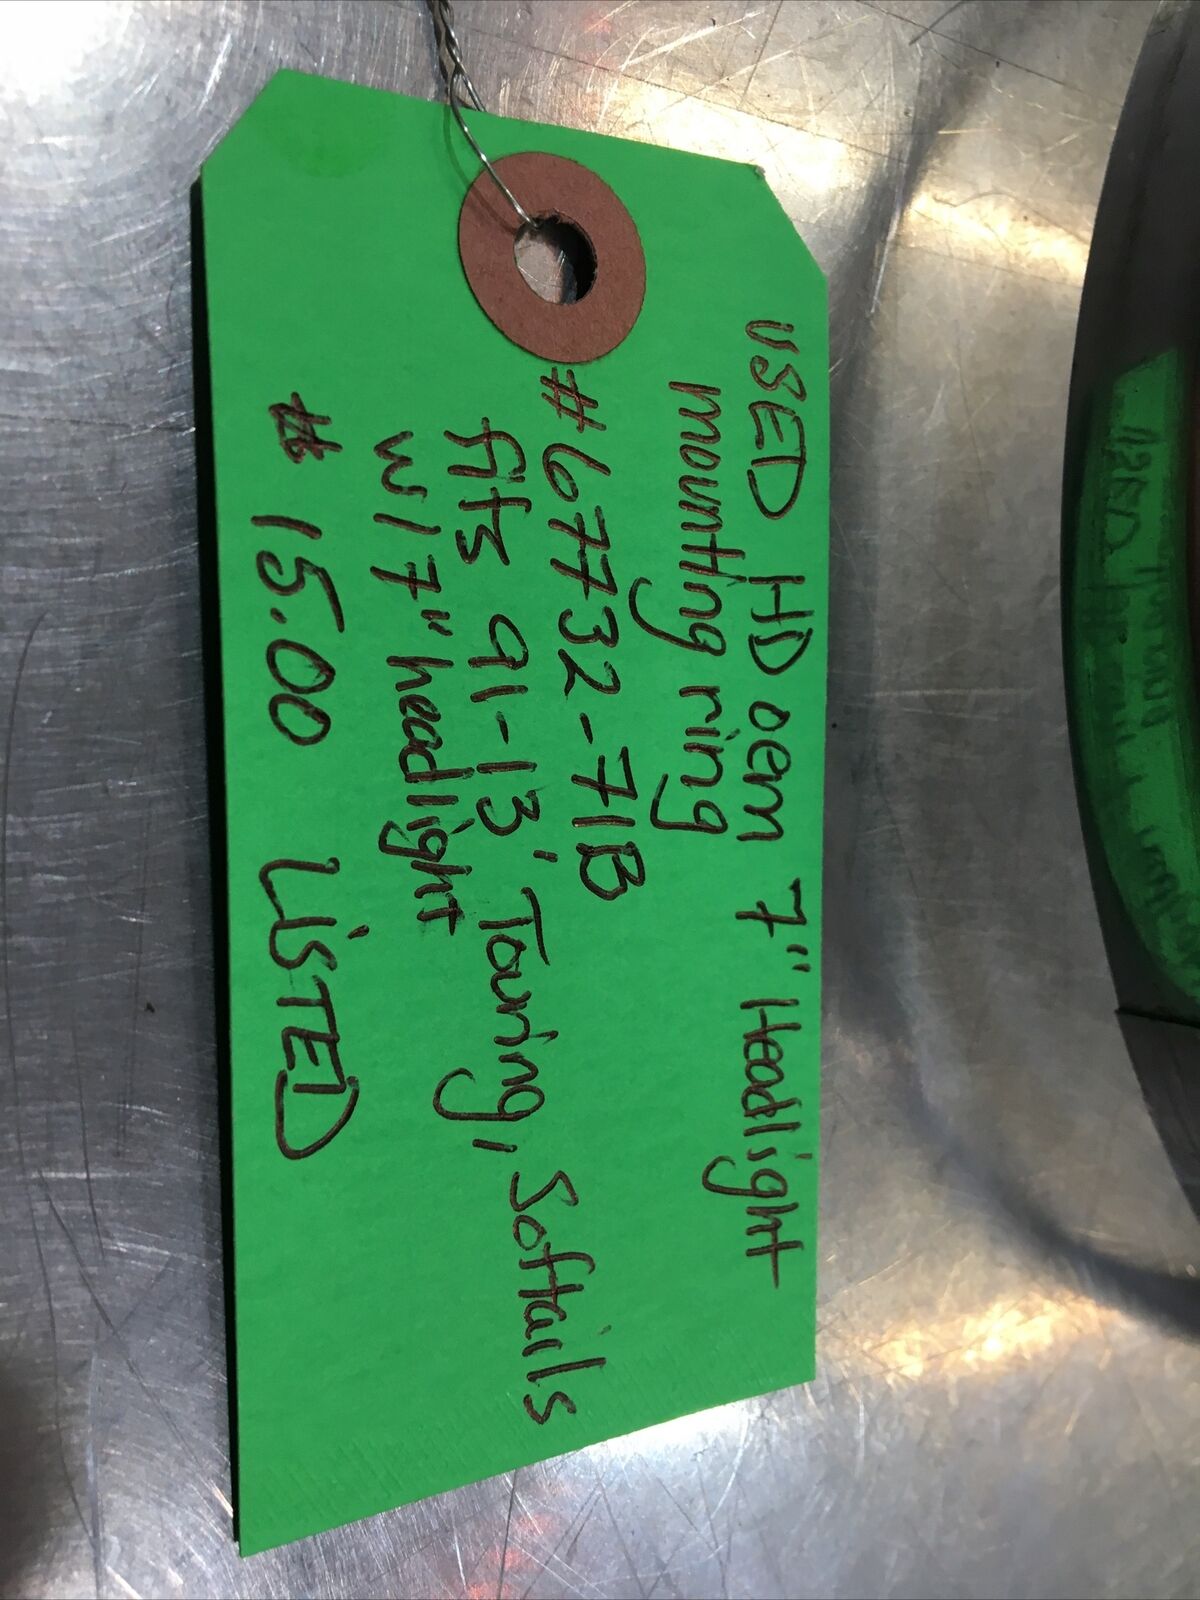 USED HD oem 7" Headlight
mounting ring
#67732-71B
fits 91-13' Touring, Softails
w/ 7" headlight
$ 15.00 LiSTED
USED